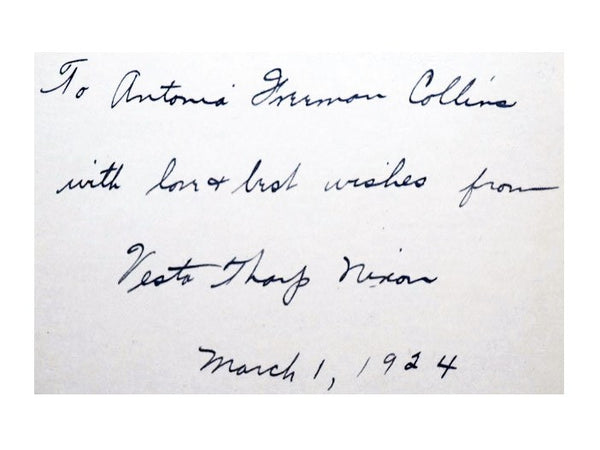 To Antonia Freeman Collins
with love & best wishes from
Vesta Tharp Nixon
March 1, 1924